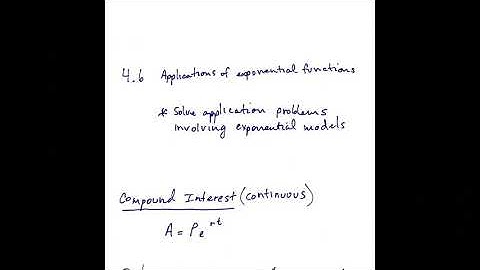 4.6 Applications of exponential functions
* Solve application problems
involving exponential models
Compound Interest (continuous)
A = Pe^rt